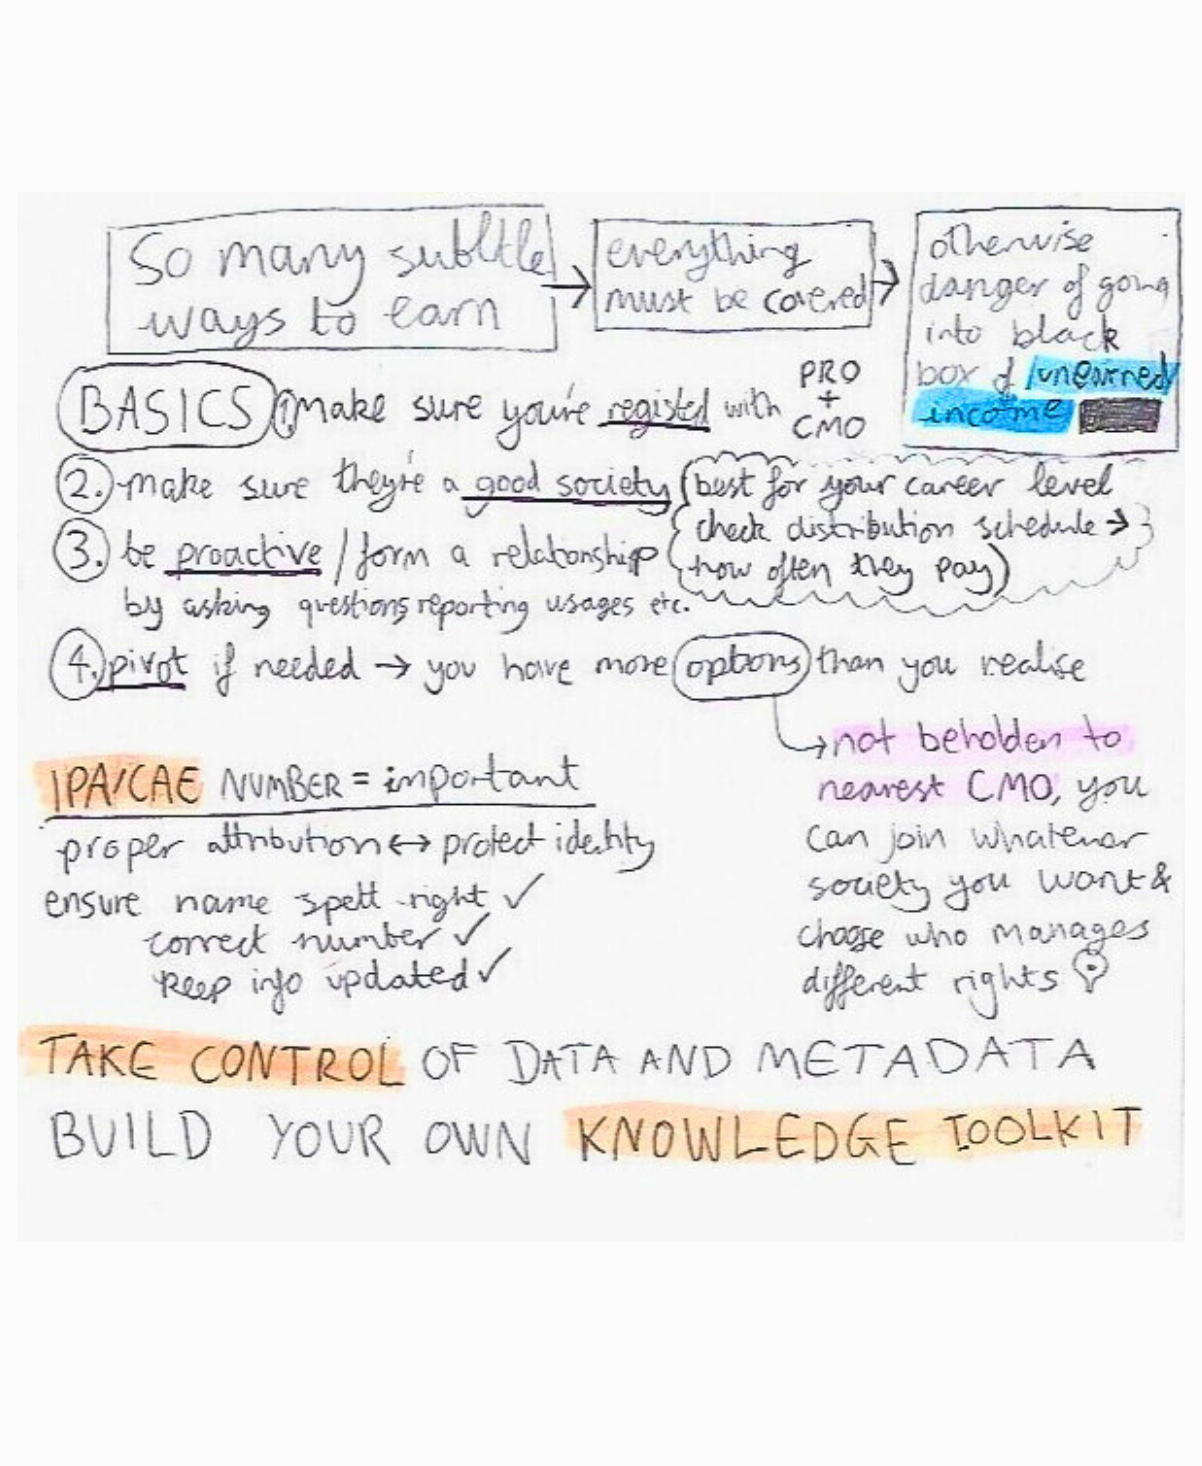 So many subltle
ways to earn
everything
must be covered
otherwise
danger of going
into black
box of unearned
income
BASICS 1. make sure you're registed with PRO + CMO
2. make sure they're a good society (best for your career level
check distribution schedule →
how often they pay)
3. be proactive / form a relationship
by asking questions, reporting usages etc.
4. pivot if needed → you have more options than you realise
→ not beholden to
nearest CMO, you
can join whatever
society you want &
choose who manages
different rights
IPA/CAE NUMBER = important
proper attribution ↔ protect identity
ensure name spelt right ✓
correct number ✓
keep info updated ✓
TAKE CONTROL OF DATA AND METADATA
BUILD YOUR OWN KNOWLEDGE TOOLKIT